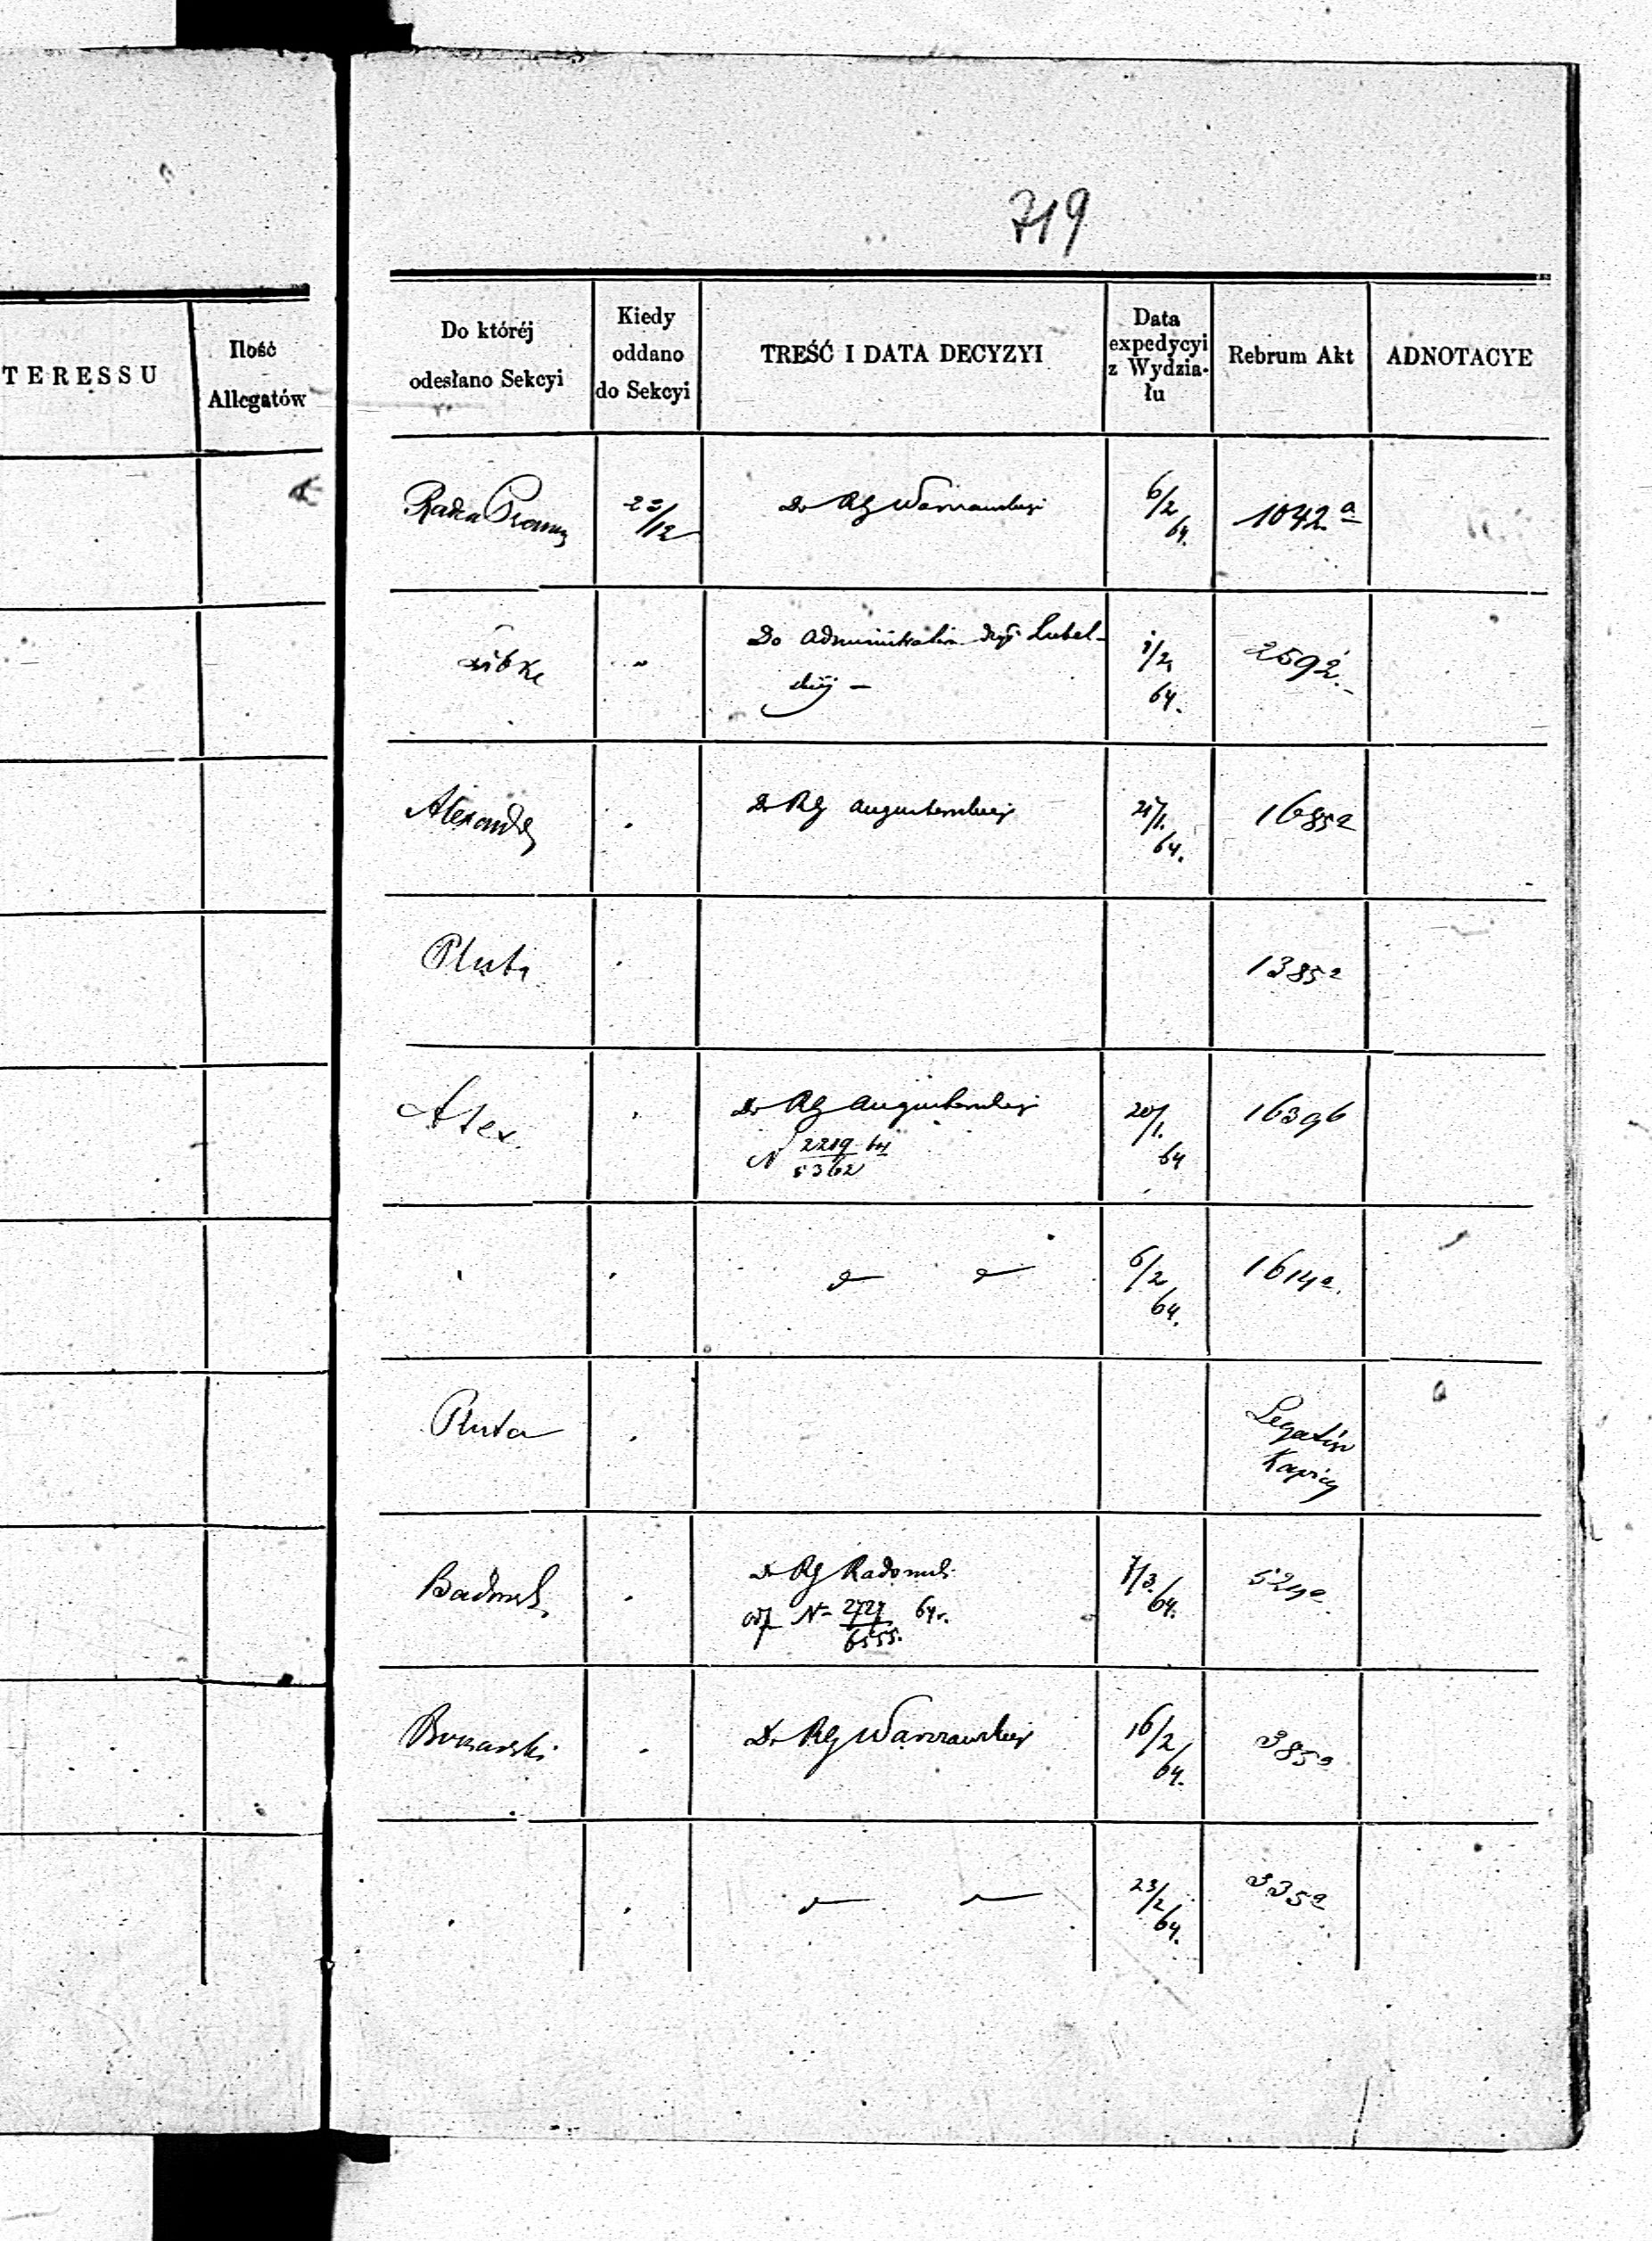 719
TERESSU
Ilość
Allegatów
Do któréj
odesłano Sekcyi
Kiedy
oddano
do Sekcyi
TREŚĆ I DATA DECYZYI
Data
expedycyi
z Wydzia-
łu
Rebrum Akt
ADNOTACYE
Radca
22/12
Do RG Warszawskiej
6/2
64.
1042 a
Do Administratora Lubel-
skiej —
/2
64.
2592.
Do RG Augustowskiej
/1.
64.
1685a
Pluta
1385a
Alex.
Do RG Augustowskiej
N 2219 64
5362
20/1.
64
1639b
6/2
64.
1614a.
Pluta
Do RG Radomsk.
N= 2727 64r.
6555.
7/3.
64.
524a
Do RG Warszawskiej
16/2
64.
385a
23/2
64.
335a